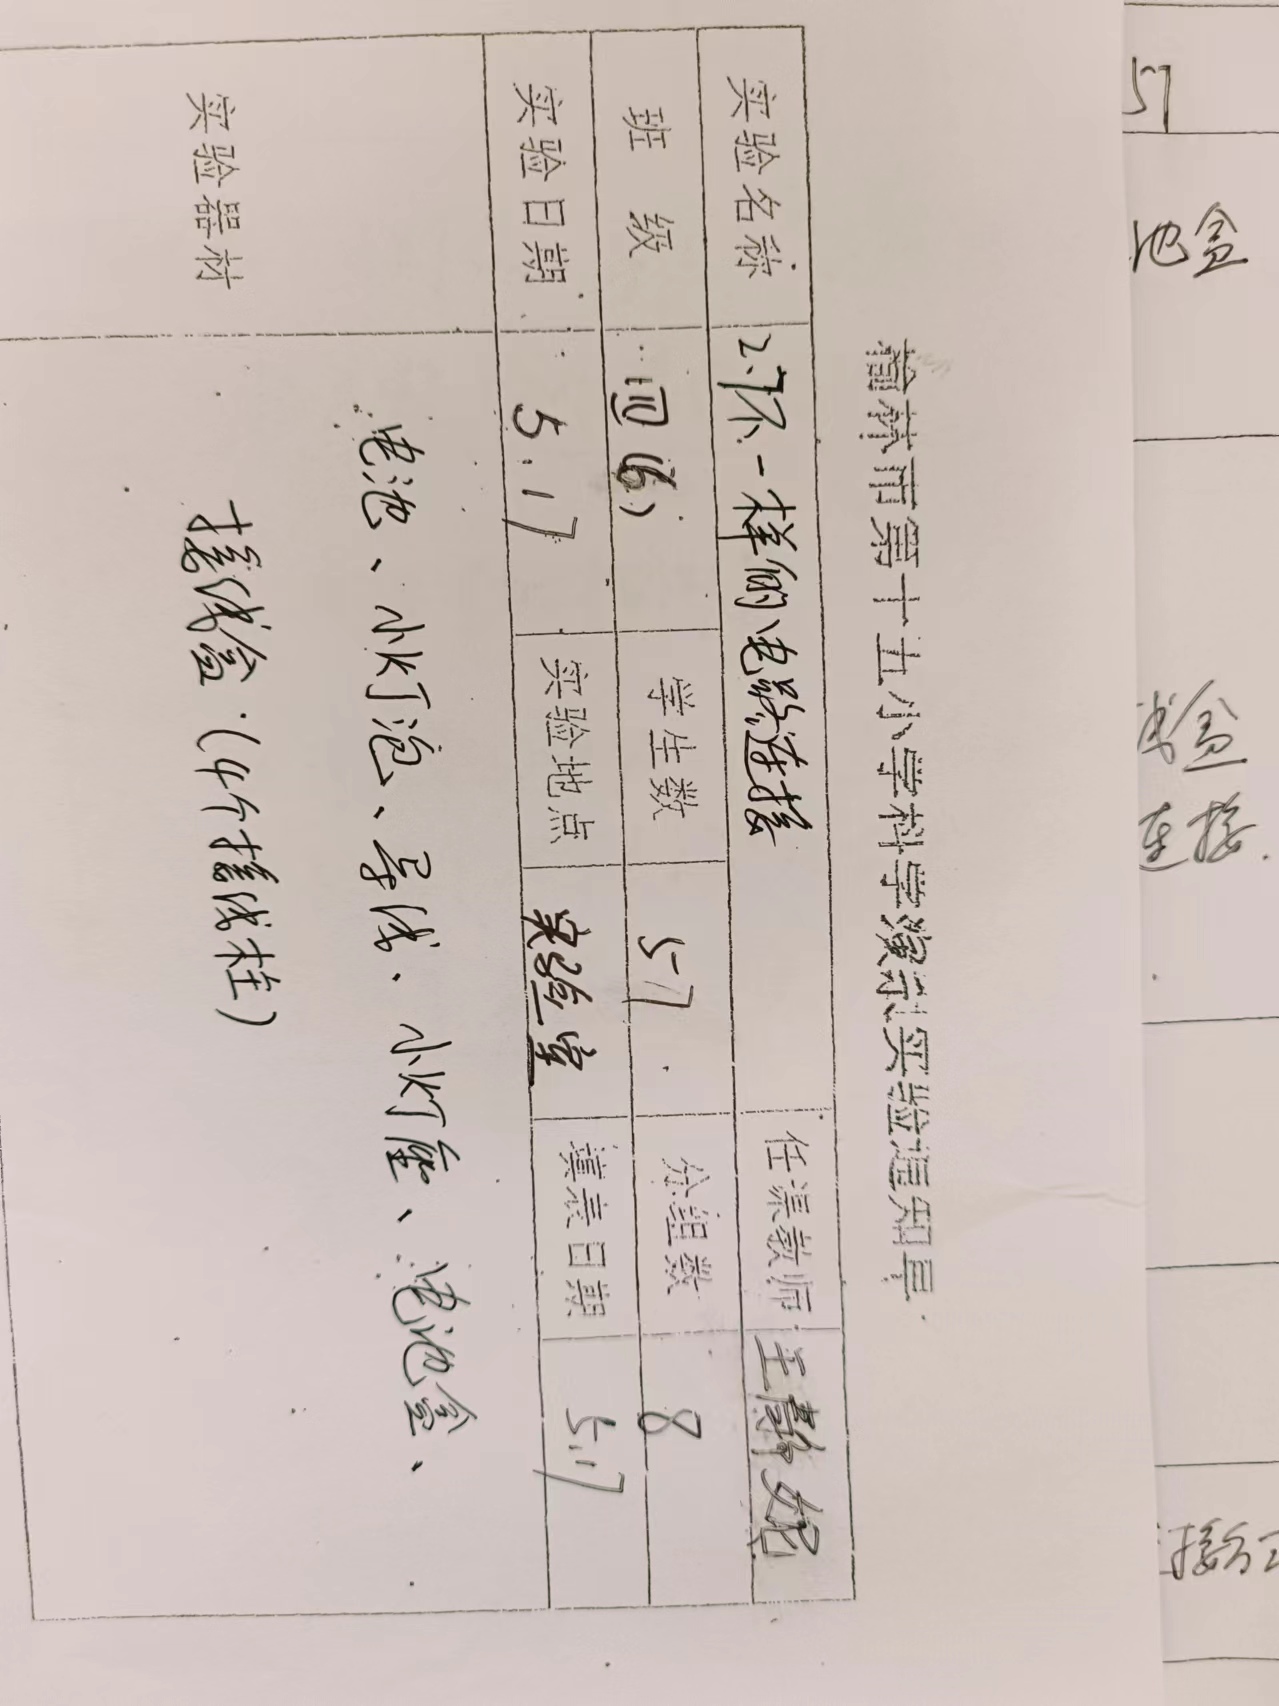 榆林市第十五小学科学演示实验通知单
实验名称 2.7不一样的电路连接 任课教师 王蔚妮
班级 四(6) 学生数 57 分组数 8
实验日期 5.17 实验地点 实验室 填表日期 5.17
实验器材 电池、小灯泡、导线、小灯座、电池盒、
接线盒(4个接线柱)
57
池盒
线盒
连接.
接方